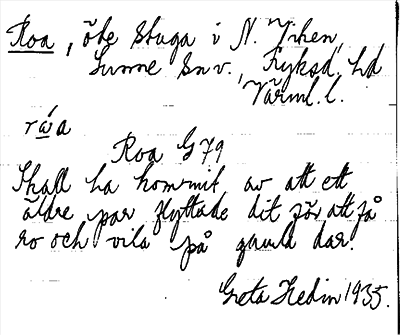 Roa, öde stuga i N. Viken,
Sunne sn v., Fryksd. hd
Värml. l.
róa
Roa G 79
Skall ha kommit av att ett
äldre par flyttade dit för att få
ro och vila på gamla dar.
Greta Hedin 1935.